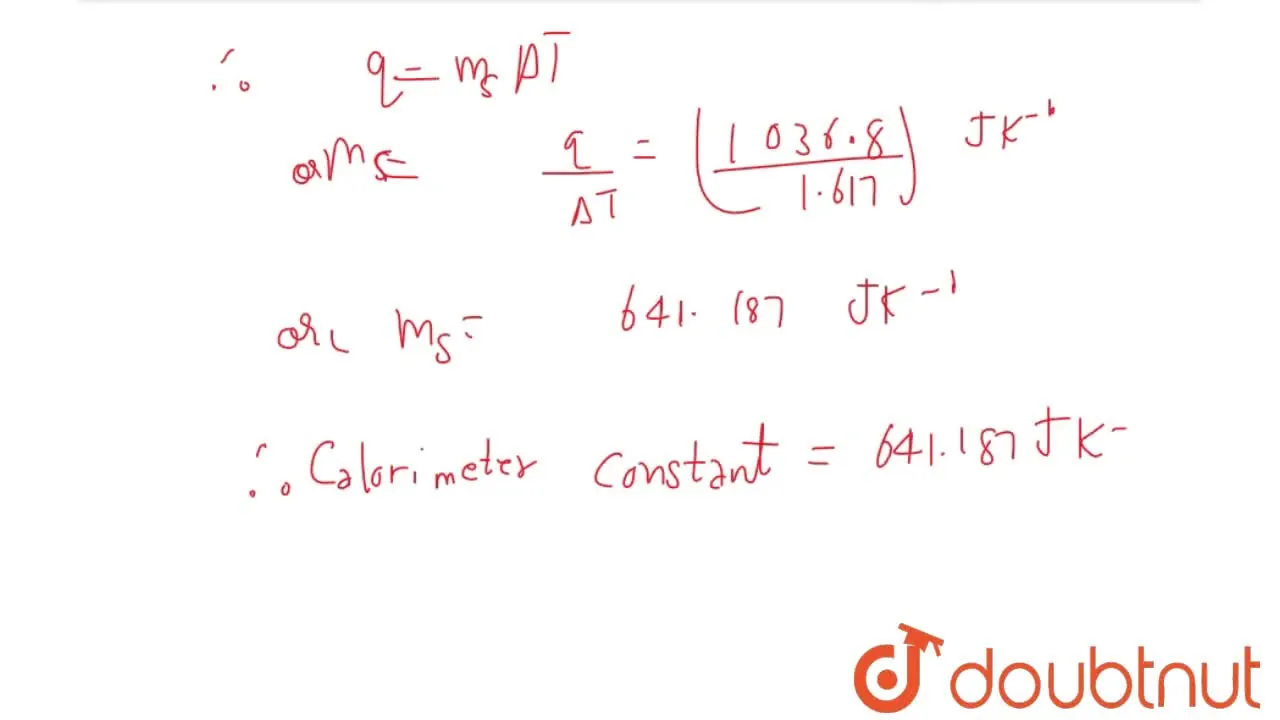 ∴ q = ms ΔT
or ms = q/ΔT = (1036.8/1.617) JK⁻¹
or, ms = 641.187 JK⁻¹
∴ Calorimeter constant = 641.187 JK⁻
doubtnut